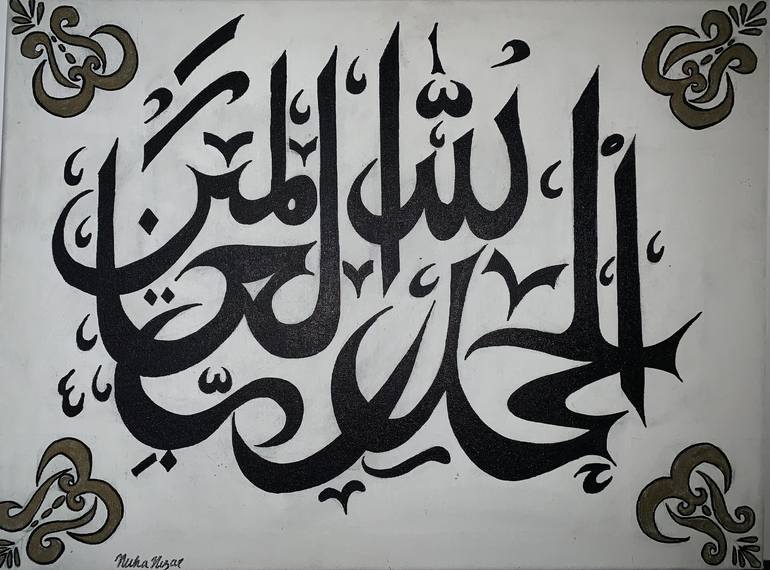 الحمد لله رب العالمين
Nuha Nizar